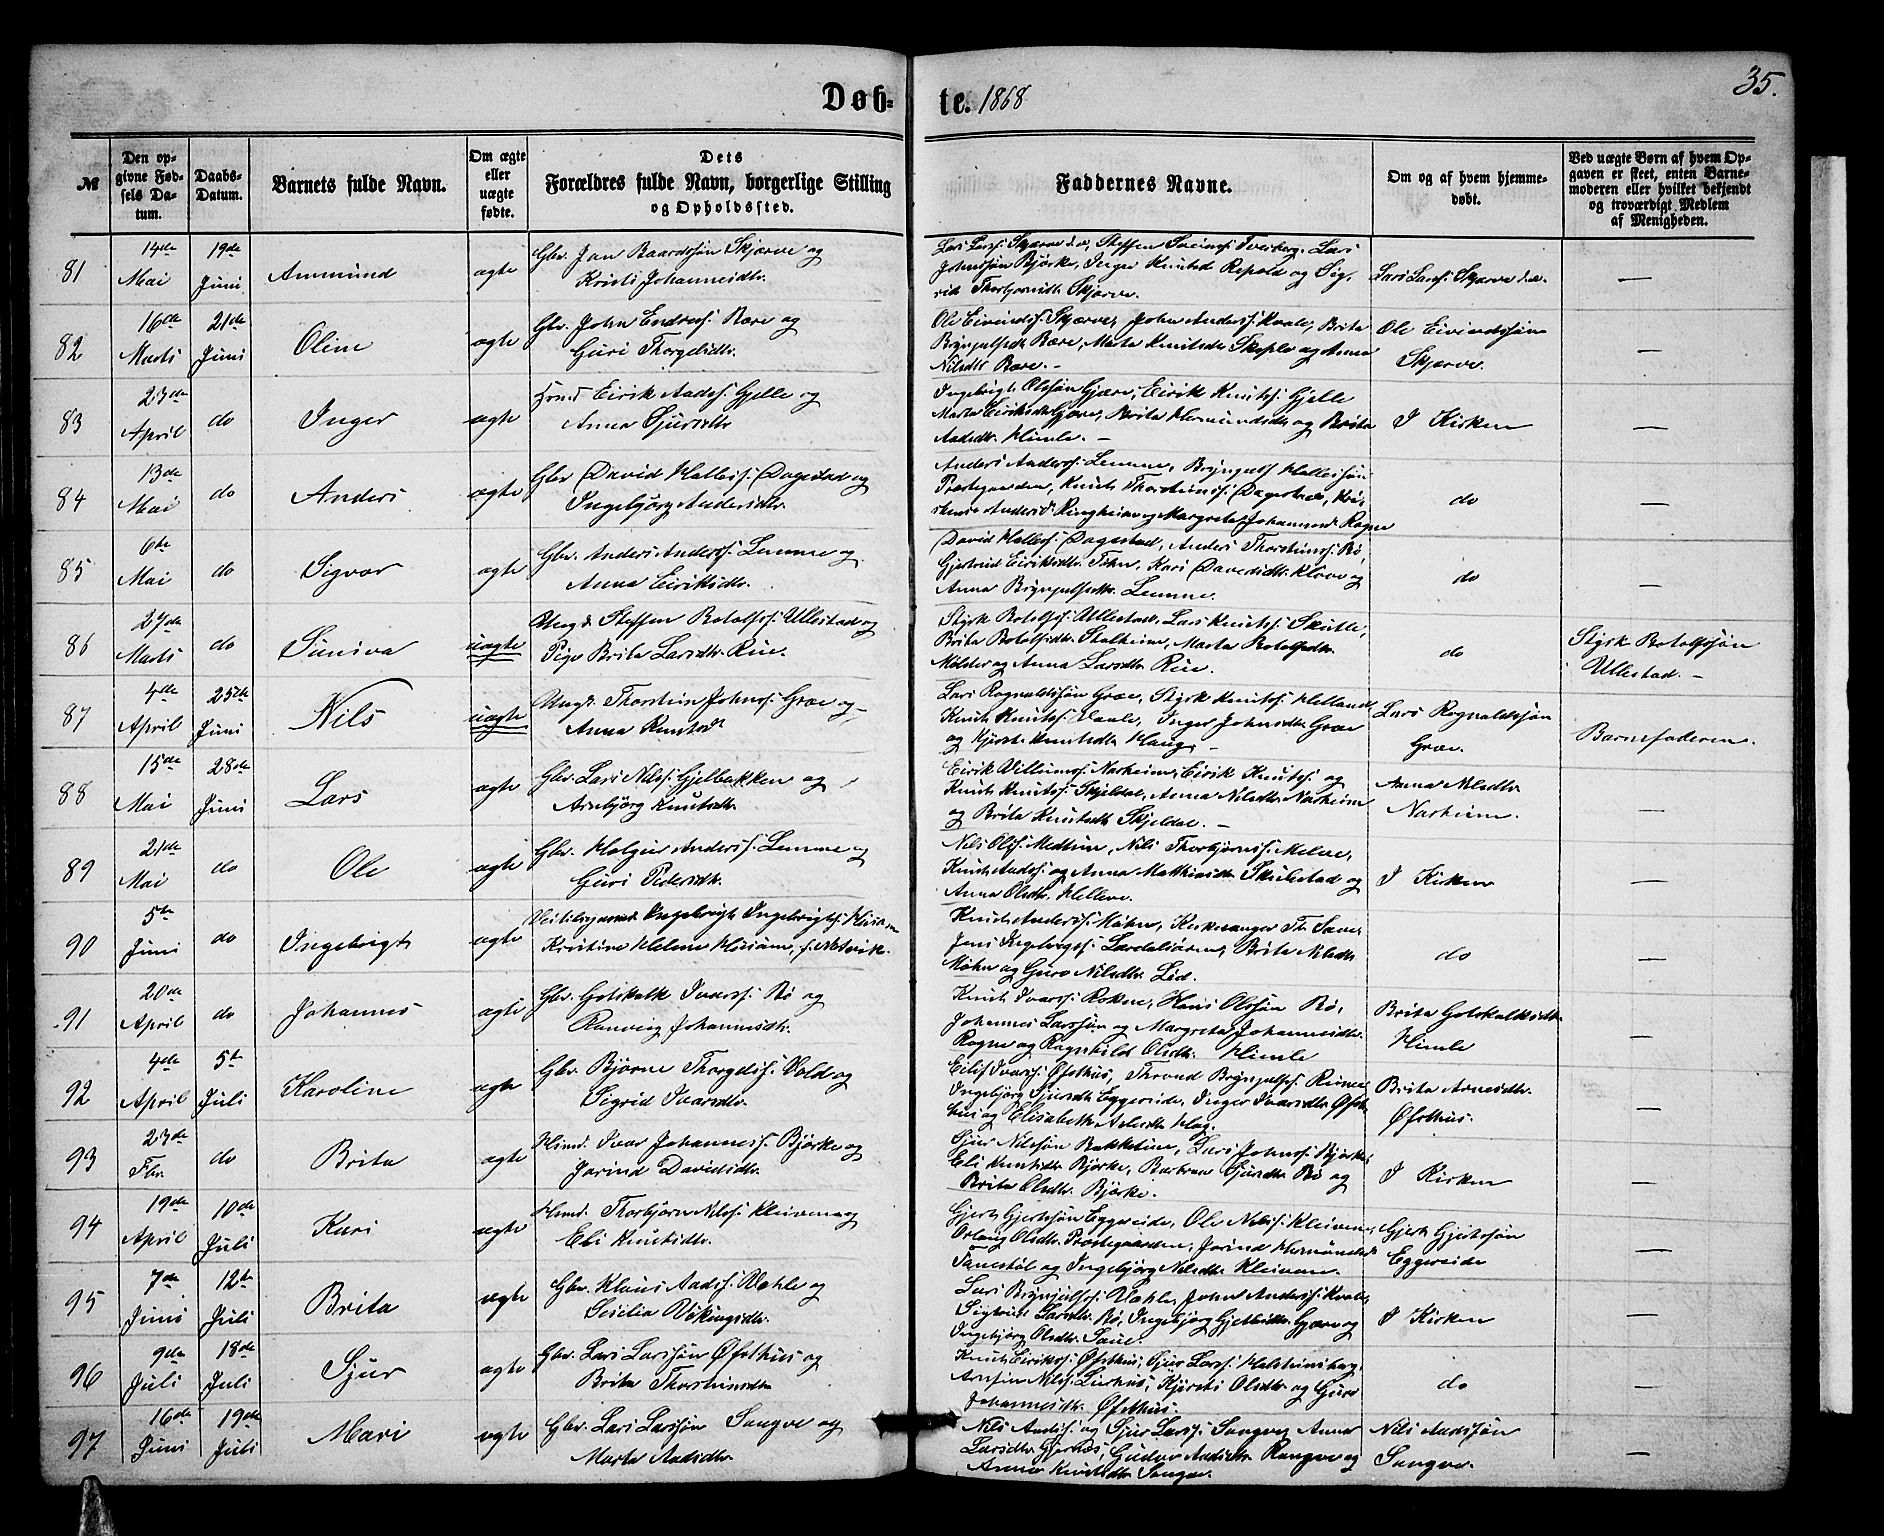 Døb-
te. 1868
35.
№
Den op-
givne Fød-
sels Da-
tum.
Daabs-
Datum.
Barnets fulde Navn.
Om ægte
eller
uægte
fødte.
Dets
Forældres fulde Navn, borgerlige Stilling
og Opholdssted.
Faddernes Navne.
Om og af hvem hjemme-
døbt.
Ved uægte Børn af hvem Op-
gaven er skeet, enten Barne-
moderen eller hvilket bekjendt
og troværdigt Medlem
af Menigheden.
81
14de
Mai
19de
Juni
Ammund
ægte
Gbr. Jon Baardssøn Skjærve og
Kristi Johannesdtr.
Johnssøn Bjørke, Inger Knutsd. Repold og Sig-
rid Thorbjørnsdtr. Skjerve.
Lars Larss. Skjerve
—
82
16de
Marts
21de
Juni
Oline
ægte
Gbr. John Endress. Bære og
Guri Thorgelsdtr.
Ole Eivindss. Skjærve, John Anderss. Kvale, Brita
Brynjulfsdtr. Bære, Marta Knutsdtr. og Anna
Nilsdtr. Bære. —
Ole Eivindssøn
Skjerve.
—
83
23de
April
do
Inger
ægte
Eirik Aadss. Gjelle og
Anna Sjursdtr.
Ingebrigt Olssøn Gjære, Eirik Knutss. Gjelle
Marta Eiriksdtr. Gjære, Brita Hermundsdtr. og Brita
Aadsdtr. Himle. —
I Kirken
—
84
13de
Mai
do
Anders
ægte
Gbr. David Halless. Dagestad og
Ingebjørg Andersdtr.
Anders Anderss. Lemme, Brynjulf Hallessøn
Præstegaarden, Knut Thorsteinss. Dagestad, Kri-
Ringheim og Margreta Johannesd. Rogne
do
—
85
6te
Mai
do
Sigvor
ægte
Gbr. Anders Anderss. Lemme og
Anna Eiriksdtr.
David Halless. Dagestad, Anders Thorsteinss. Bø
Gjertrud Eiriksdtr. Finn, Kari Davidsdtr. Klove og
Anna Brynjulfsdtr. Lemme.
do
—
86
27de
Marts
do
Suniva
uægte
Ung. Steffen Botolfss. Ullestad og
Pige Brita Larsdtr. Rue.
Styrk Botolfss. Ullestad, Lars Knutss. Skutle,
Brita Botolfsdtr. Stalheim, Marta Botolfsdtr.
Mølster og Anna Larsdtr. Rue.
do
Styrk Botolfssøn
Ullestad. —
87
4de
April
25de
Juni
Nils
uægte
Ung. Thorstein Johnss. Græe og
Anna Knutsd.
Lars Rognaldssøn Græe, Styrk Knutss. Helland
Knut Knutss. Inger Johnsdtr. Græe
og Kjersti Knutsdtr. Haug. —
Lars Rognaldssøn
Græe.
Barnefaderen.
88
15de
Mai
28de
Juni
Lars
ægte
Gbr. Lars Nilss. Gjelbakken og
Arnbjørg Knutsdtr.
Eirik Villumss. Narheim, Eirik Knutss. og
Knut Knutss. Skjeldal, Anna Nilsdtr. Narheim
og Brita Knutsdtr. Skjeldal. —
Anna Nilsdtr.
Narheim.
—
89
21de
Mai
do
Ole
ægte
Gbr. Holgeir Anderss. Lemme og
Guri Pedersdtr.
Nils Olss. Nils Thorbjørnss. Melve,
Knut Aadss. og Anna Matthiasdtr. Skulestad og
Anna Olsdtr. Helleve.
I Kirken
—
90
5te
Juni
do
Ingebrigt
ægte
Ingebrigt Ingebrigtss. Husum
Kristine Helene Husum, f. Netvik.
Knut Anderss. Møhn, Kirkesanger Th. Saue,
Jens Lærdalsøren, Brita Nilsdtr.
Møhn og Guro Nilsdtr. Lid.
do
—
91
20de
April
do
Johannes
ægte
Gbr. Gotskalk Ivarss. Bø og
Ranveig Johannesdtr.
Knut Ivarss. Rokne, Hans Olssøn Bø,
Johannes Larssøn og Margreta Johannesdtr.
Rogne og Ragnhild Olsdtr. Himle
Brita Gotskalksdtr.
Himle
—
92
4de
April
5te
Juli
Karoline
ægte
Gbr. Bjørne Thorgelss. Vold og
Sigrid Ivarsdtr.
Eilif Ivarss. Øfsthus, Thrond Brynjulfss. Rime,
Ingebjørg Sjursdtr. Eggereide, Inger Ivarsdtr. Øfst-
hus og Elisabeth Arnesdtr. Hog.
Brita Arnesdtr.
Øfsthus.
—
93
23de
Fbr.
do
Brita
ægte
Huusmd. Ivar Johanness. Bjørke og
Jorind Davidsdtr.
Sjur Nilssøn Bakketun, Lars Johnss. Bjørke,
Eli Knutsdtr. Bjørke, Barbra Sjursdtr. Bø og
Brita Olsdtr. Bjørke.
I Kirken
—
94
19de
April
10de
Juli
Kari
ægte
Husmd. Thorbjørn Nilss. Kleivene og
Eli Knutsdtr.
Gjert Gjertssøn Eggereide, Ole Nilss. Kleivene,
Orlaug Olsdtr. Præstegaarden, Jorind Hermundsd.
og Ingebjørg Nilsdtr. Kleivene.
Gjert Gjertssøn
Eggereide
—
95
7de
Juni
12te
Juli
Brita
ægte
Gbr. Klaus Aadss. Væhle og
Sesilia Vikingsdtr.
Lars Brynjulfss. Væhle, John Anderss. Kvale,
Sigtrud Larsdtr. Bø, Ingebjørg Gjære og
Ingebjørg Olsdtr. Saue.
I Kirken
—
96
9de
Juli
18de
Juli
Sjur
ægte
Gbr. Lars Larssøn Øfsthus og
Brita Thorsteinsdtr.
Knut Eirikss. Øfsthus, Sjur Larss.
Arnfin Nilss. Lirhus, Kjersti Olsdtr. og Guri
Johannesdtr. Øfsthus.
do
—
97
16de
Juni
19de
Juli
Mari
ægte
Gbr. Lars Larssøn Sonve og
Marta Aadsdtr.
Nils Aadss. og Sjur Larss. Sonve, Anna
Larsdtr. Gjernes, Gudve Aadsdtr. Rongve og
Anna Knutsdtr. Songve.
Nils Aadssøn
Songve.
—